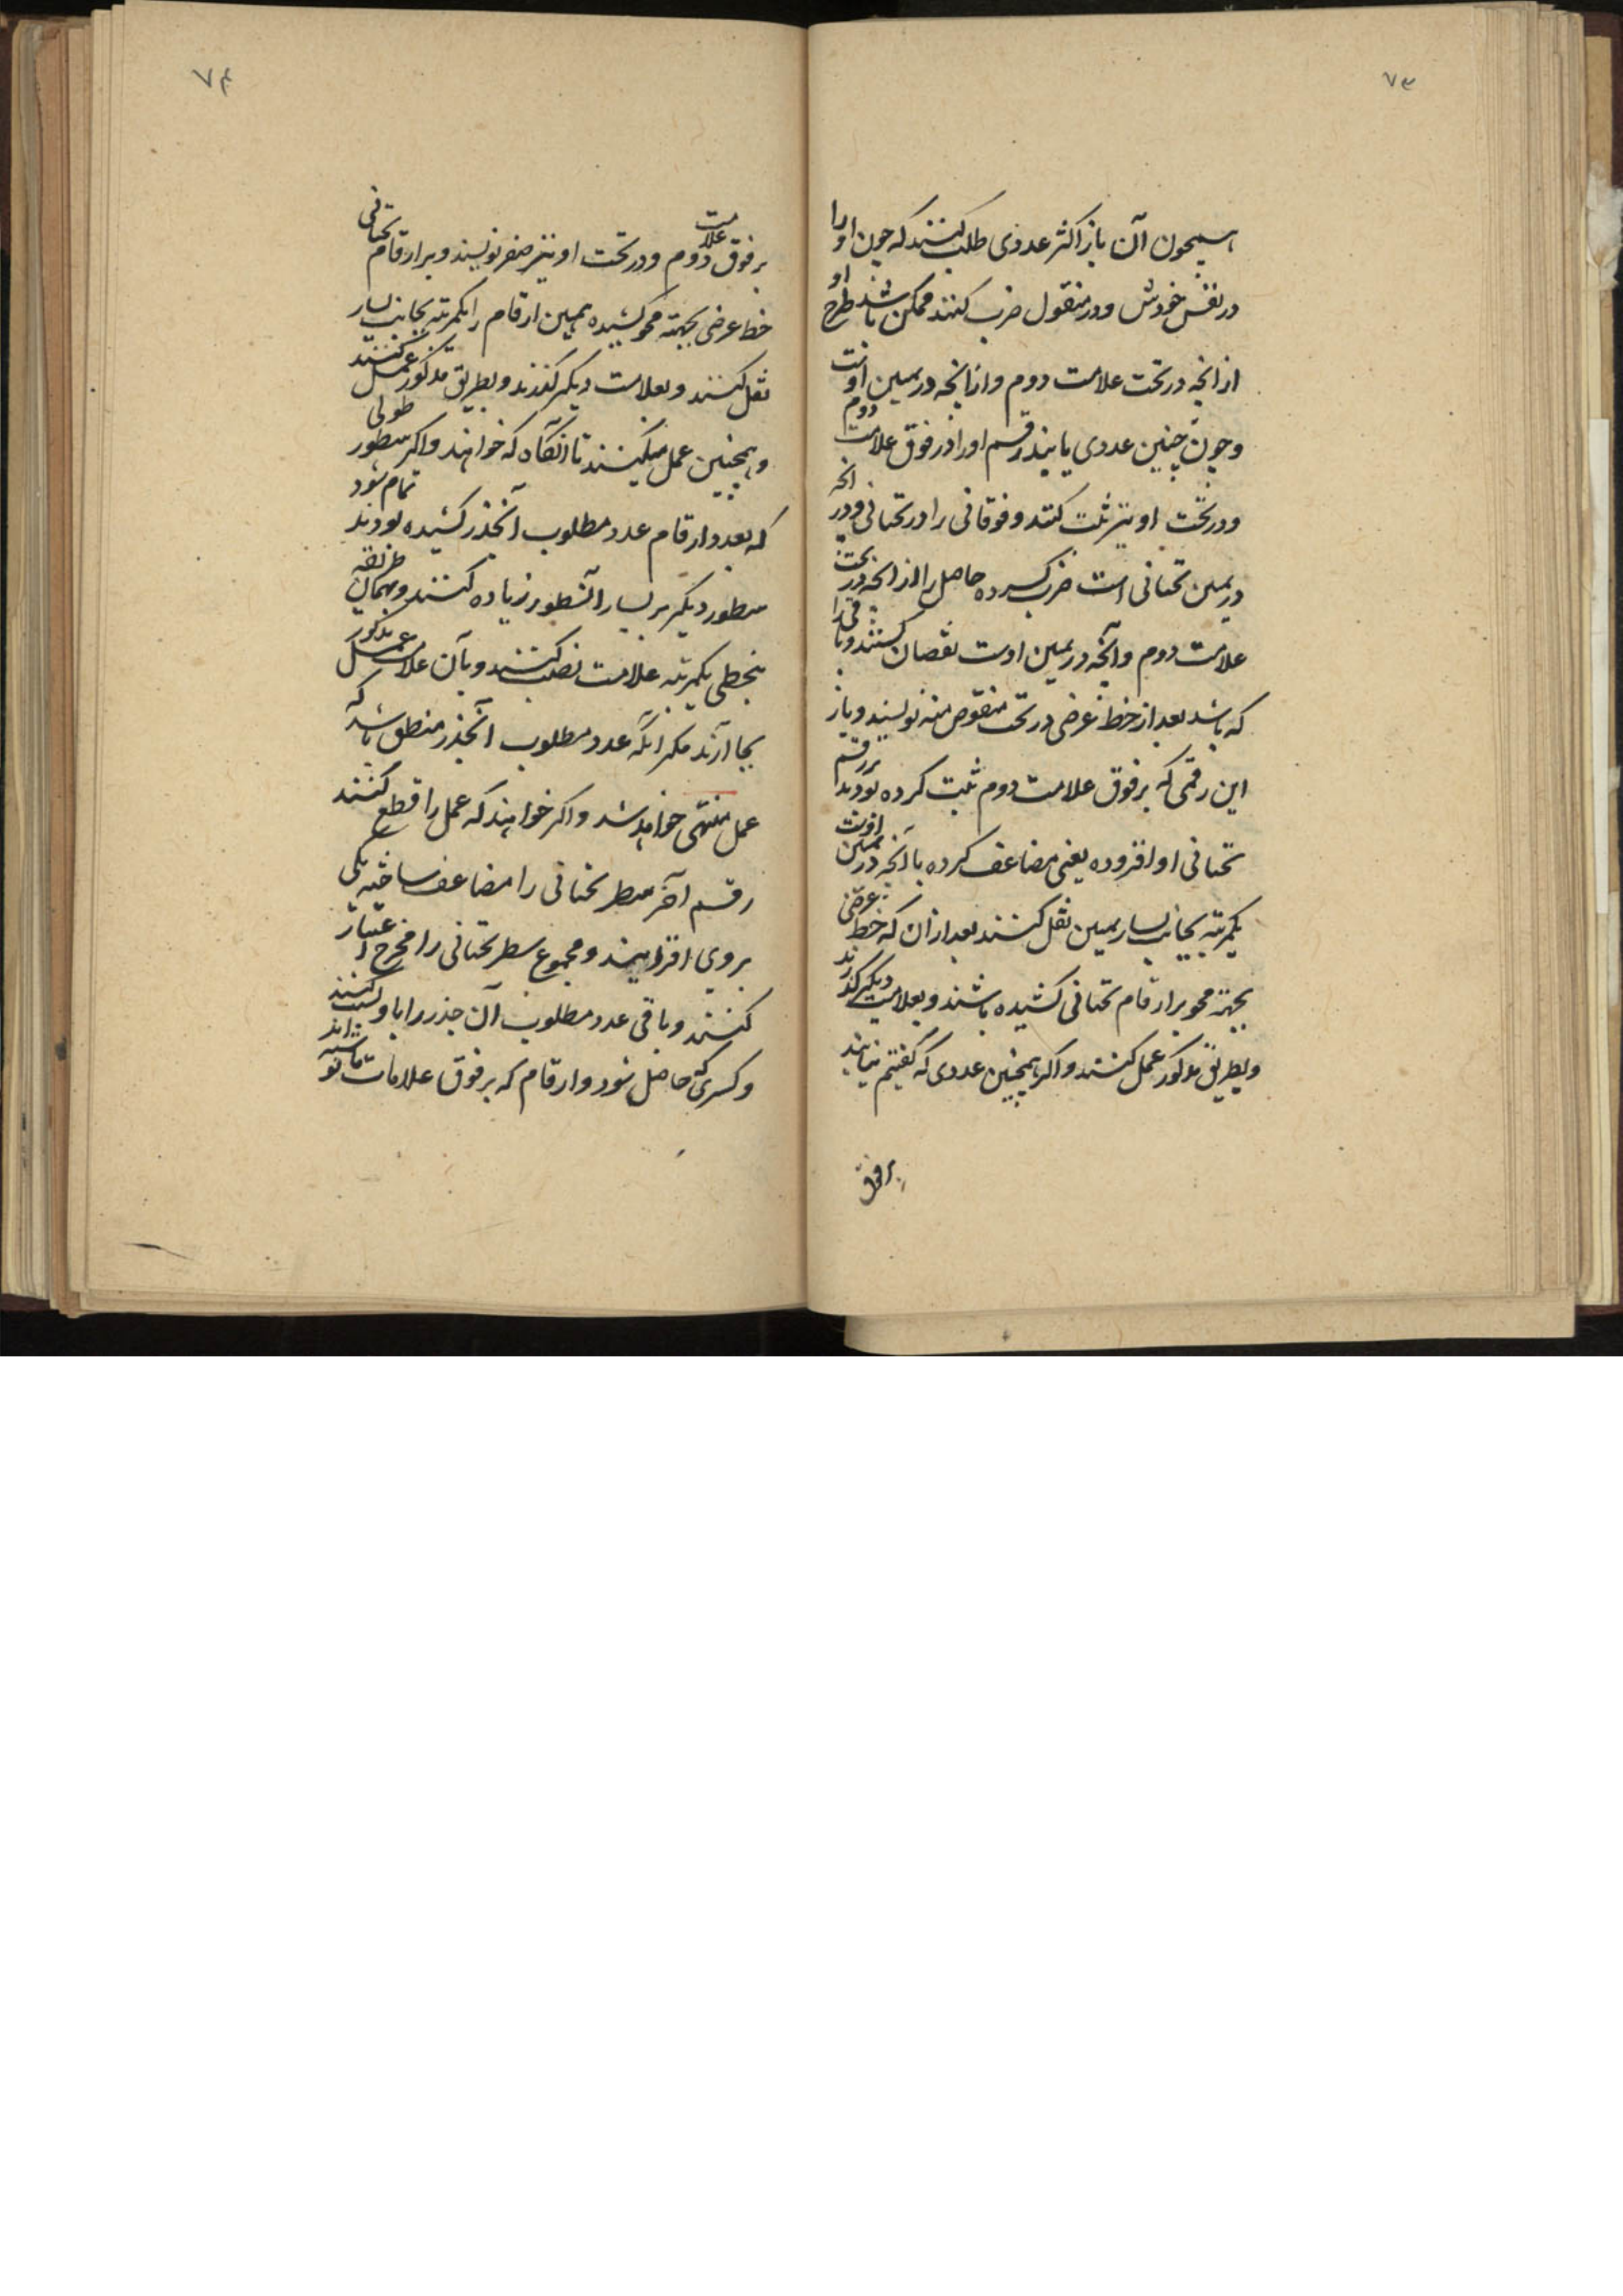 ۷۳
همچون آن باز اکثر عددی طلب کنند که چون او را
در نفس خودش و در منقول ضرب کنند ممکن باشد طرح او
از آنچه در تحت علامت دوم و از آنچه در یمین اوست
و چون چنین عددی یابند رقم او را در فوق علامت دوم
و در تحت او نیز ثبت کنند و فوقانی را در تحتانی و در آنچه
در یمین تحتانی است ضرب کرده حاصل را از آنچه در تحت
علامت دوم و آنچه در یمین اوست نقصان کنند و باقی را
که باشد بعد از خط عرضی در تحت منقوص منه نویسند و باز
این رقمی که بر فوق علامت دوم ثبت کرده بودند بر رقم
تحتانی او افزوده یعنی مضاعف کرده با آنچه در یمین اوست
یکمرتبه بجانب یسار یمین نقل کنند بعد از آن که خط عرضی
بجهته محو بر ارقام تحتانی کشیده باشند و بعلامت دیگر گذرند
و بطریق مذکور عمل کنند و اگر همچنین عددی که گفتیم نیابند
بر فوق
۷۴
بر فوق علامت دوم و در تحت او نیز صفر نویسند و بر ارقام تحتانی
خط عرضی بجهته محو کشیده همین ارقام را یکمرتبه بجانب یسار
نقل کنند و بعلامت دیگر گذرند و بطریق مذکور عمل کنند
و همچنین عمل میکنند تا آنگاه که خواهند و اگر سطور طولی
که بعدد ارقام عدد مطلوب الجذر کشیده بودند تمام شود
سطور دیگر بر یسار آن سطور زیاده کنند و بهمان طریقه
بتخطی یکمرتبه علامت نصب کنند و بآن علامت عمل مذکور
بجا آرند مگر آنکه عدد مطلوب الجذر منطق باشد که
عمل منتهی خواهد شد و اگر خواهند که عمل را قطع کنند
رقم آخر سطر تحتانی را مضاعف ساخته یکی
بروی افزایند و مجموع سطر تحتانی را مخرج اعتبار
کنند و باقی عدد مطلوب آن جذر را باو نسبت کنند
و کسری که حاصل شود و ارقام که بر فوق علامات نوشته اند